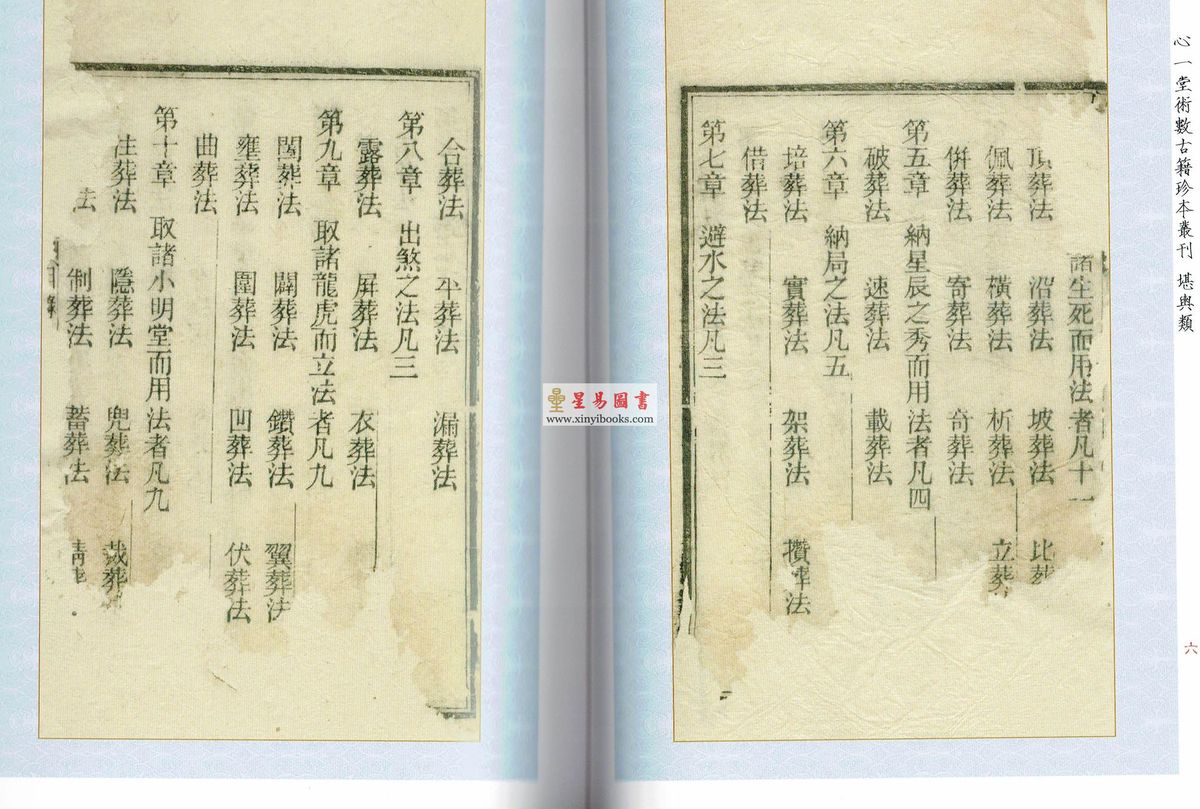 心一堂術數古籍珍本叢刊 堪輿類
六
諸生死而用法者凡十一
頂葬法 沿葬法 坡葬法 比葬
佩葬法 橫葬法 析葬法 立葬
併葬法 寄葬法 奇葬法
第五章 納星辰之秀而用法者凡四
破葬法 速葬法 載葬法
第六章 納局之法凡五
培葬法 實葬法 架葬法 攢葬法
借葬法
第七章 避水之法凡三
合葬法 平葬法 漏葬法
第八章 出煞之法凡三
露葬法 屏葬法 衣葬法
第九章 取諸龍虎而立法者凡九
闖葬法 闢葬法 鑽葬法 翼葬法
壅葬法 圍葬法 凹葬法 伏葬法
曲葬法
第十章 取諸小明堂而用法者凡九
葬法 隱葬法 兜葬法 裁葬
法 制葬法 蓄葬法
星易圖書
www.xinyibooks.com